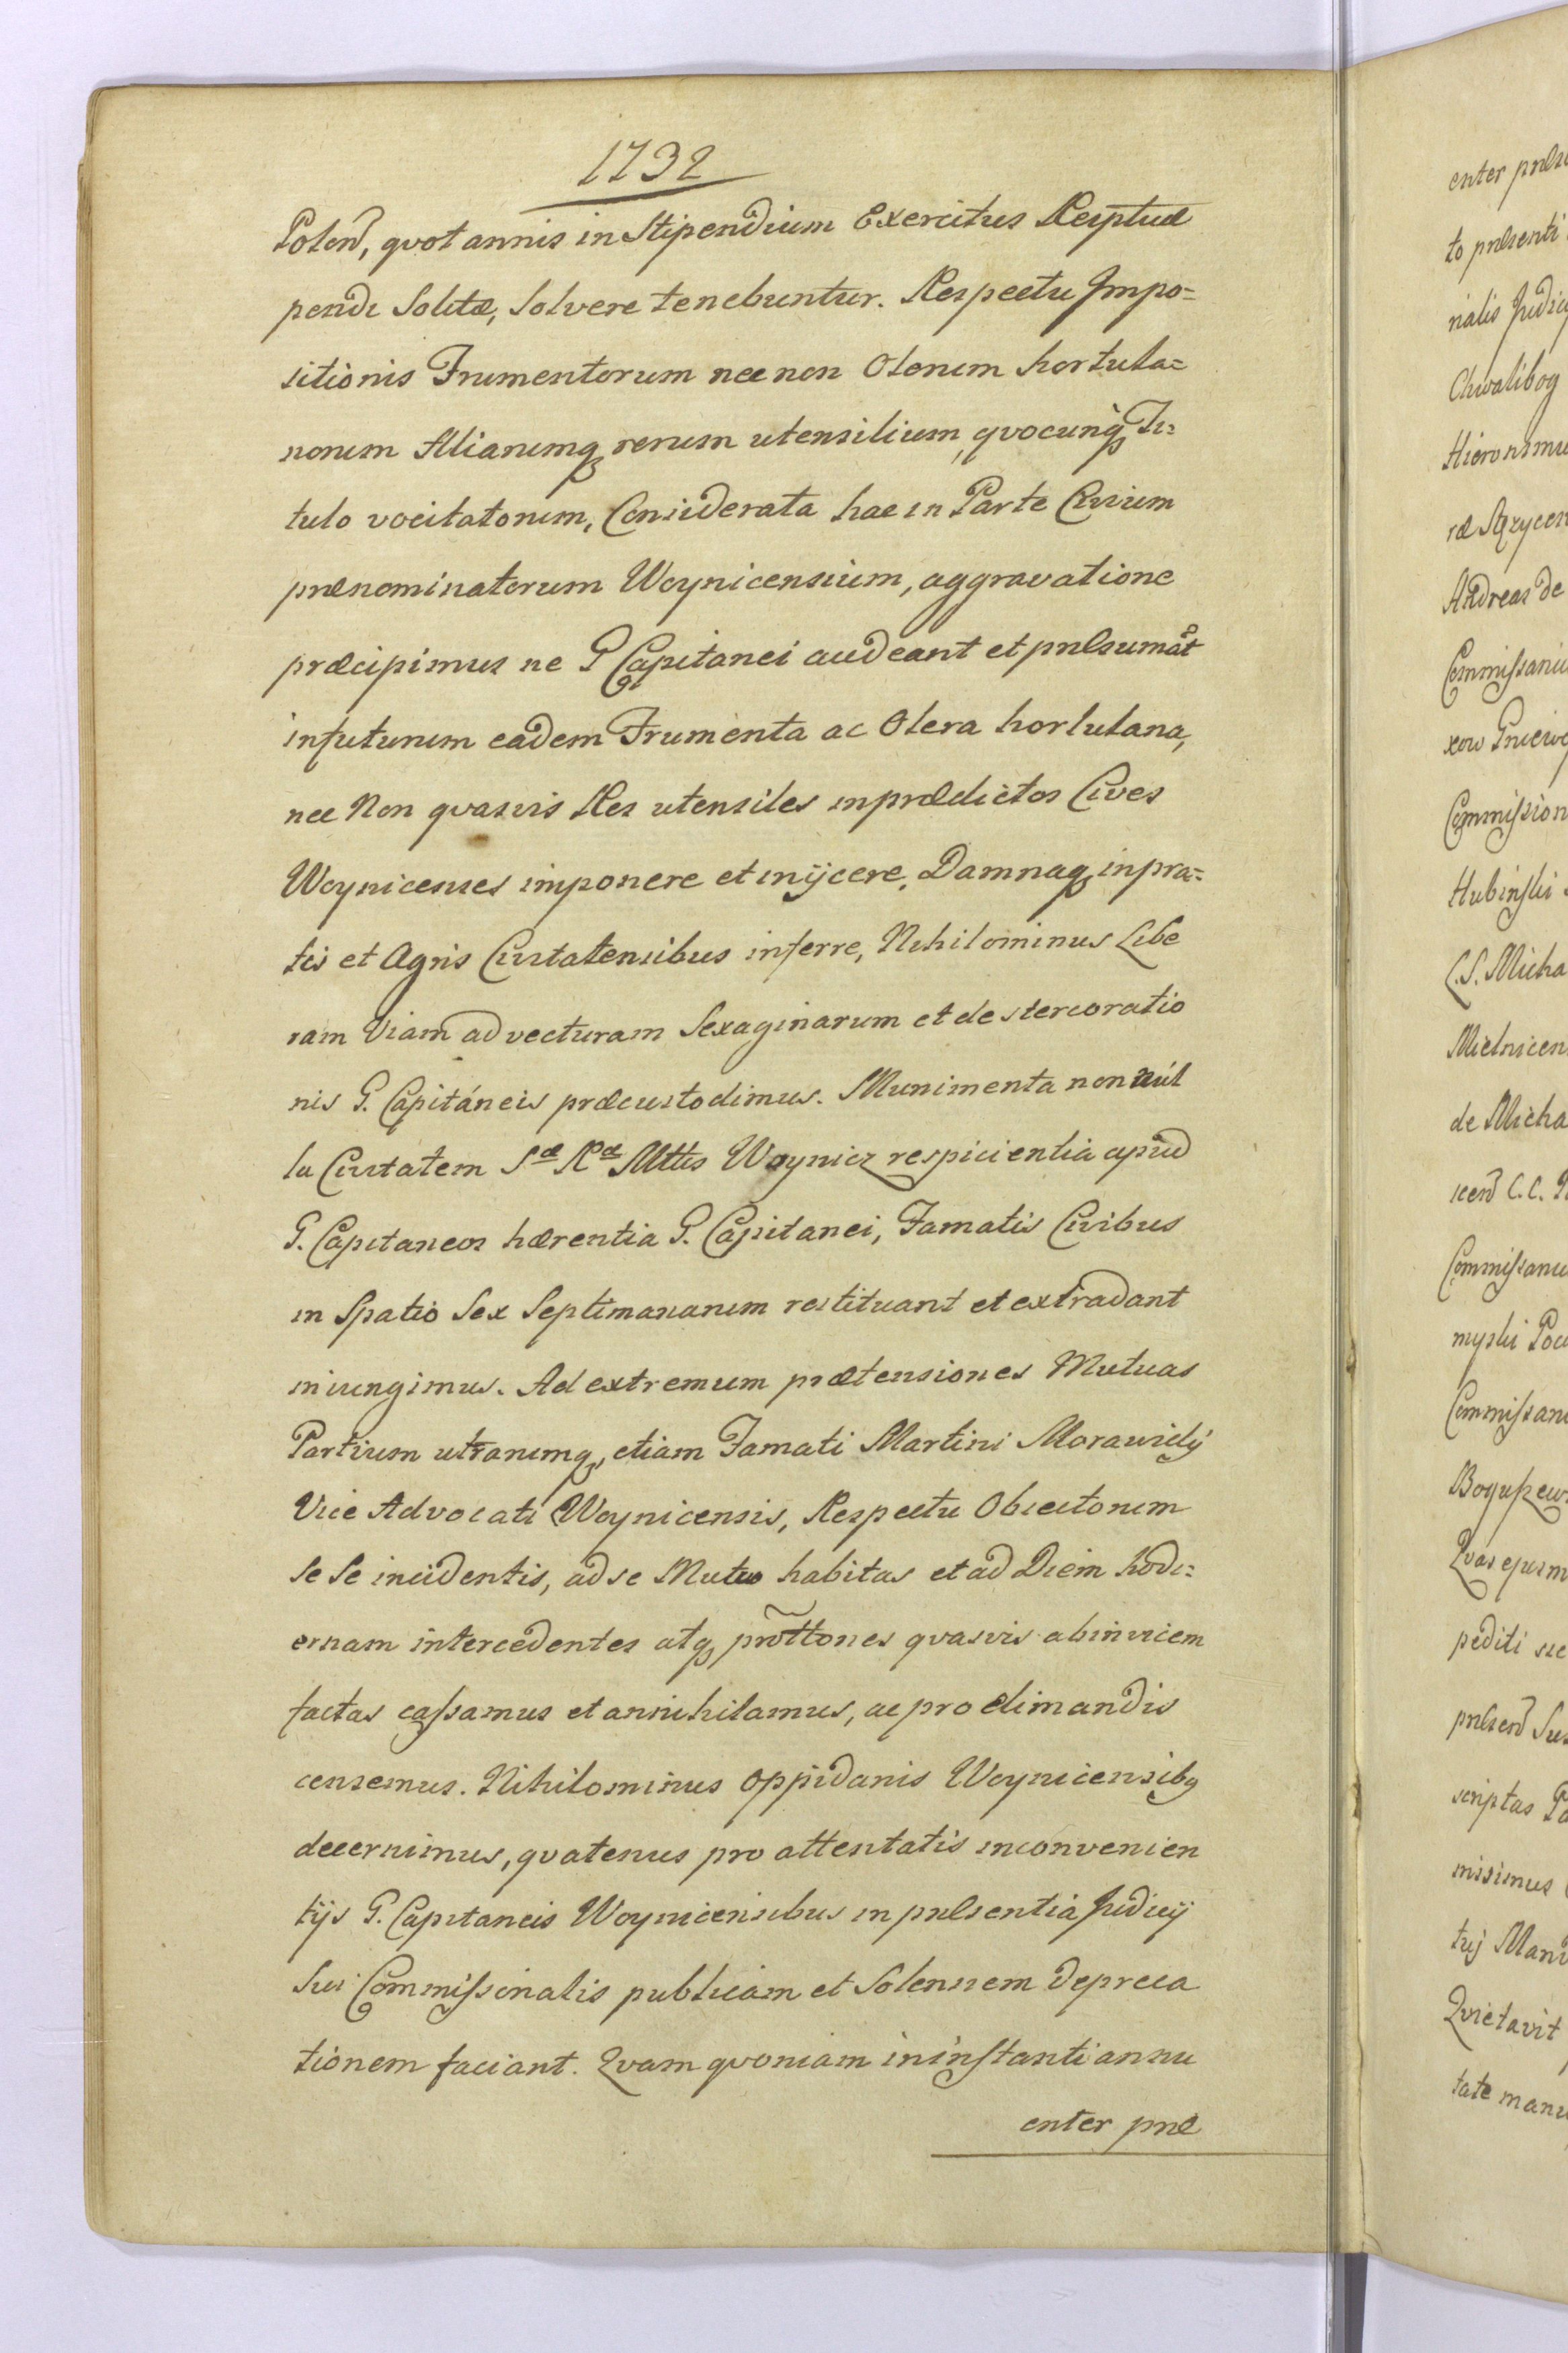 1732
Polon̄, qvot annis in Stipendium Exercitus Reip̄tucæ
pendi Solitæ, Solvere tenebuntur. Respectu Impo=
sitionis Frumentorum nec non Olerum hortula=
norum Aliarumq₃ rerum utensilium, qvocunq₃ Ti=
tulo vocitatorum, Considerata hac in Parte Civium
prænominatorum Woynicensium, aggravatione
præcipimus ne G Capitanei audeant et præsumāt
infuturum eadem Frumenta ac Olera hortulana,
nec Non qvasvis Res utensiles inprædictos Cives
Woynicenses imponere et inijcere, Damnaq₃ inpra=
tis et Agris Civitatensibus inferre, Nihilominus Libe
ram Viam advecturam Sexaginarum et destercoratio
nis G. Capitáneis præcustodimus. Munimenta non nul
la Civitatem Sæ Ræ Mttis Woynicz respicientia apud
G. Capitaneos hærentia G. Capitanei, Famatis Civibus
in Spatio Sex Septimanarum restituant et extradant
iniungimus. Ad extremum prætensiones Mutuas
Partium utrarumq₃, etiam Famati Martini Morawicij
Vice Advocati Woynicensis, Respectu Obiectorum
Se Se incidentis, ad se Mutuo habitas et ad Diem hodi=
ernam intercedentes atq₃ prõttones qvasvis abinvicem
factas cassamus et annihilamus, ac pro elimandis
censemus. Nihilominus oppidanis Woynicensibq
decernimus, qvatenus pro attentatis inconvenien
tijs G. Capitaneis Woynicensibus in præsentia Judicij
Sui Commissionalis publicam et Solennem depreca
tionem faciant. Qvam qvoniam ininstanti annu
enter præ
enter præse
to præsenti
nalis Judicij
Chwalibog
Hieronimu
ræ Stężycen
Andreas de
Commissariu
xow Gniewo
Commission
Hubinski
C. S. Micha
Mielnicen
de Micha
scen̄ C. C.
Commissariu
myski Pod
Commissari
Boguszew
Qvas ejusm
pediti sie
præsen̄ Sub
scriptas Pa
misimus
tuj Man
Qvietavit
tate manu